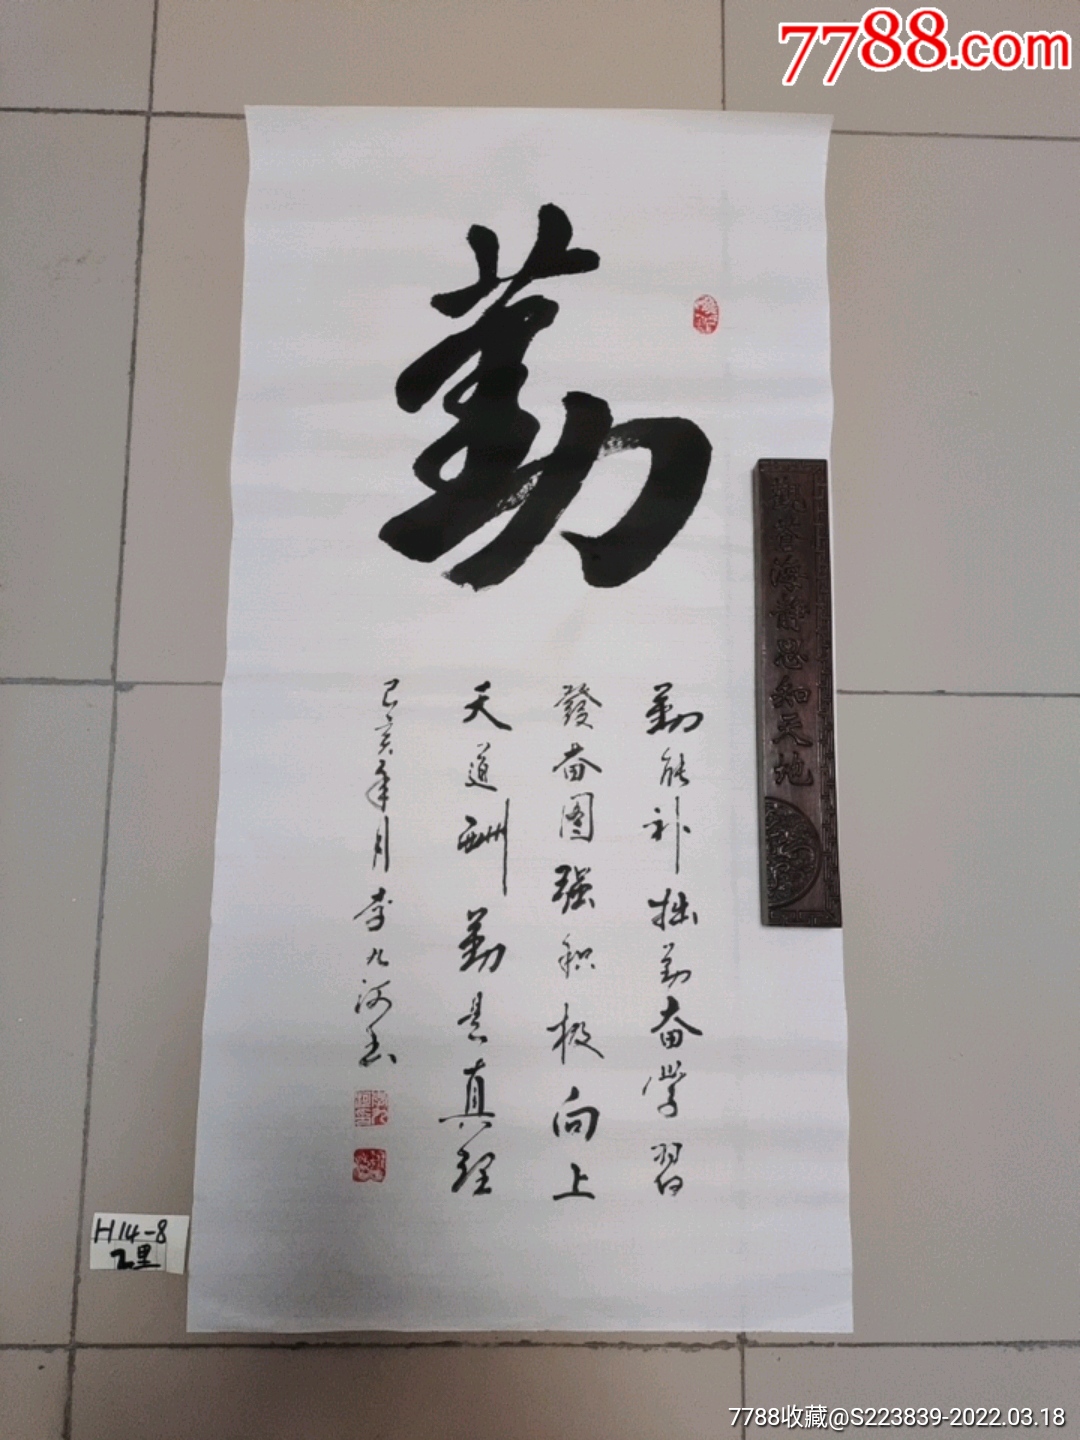 7788.com
勤
勤能补拙勤奋学習
發奋图强积极向上
天道酬勤是真経
己亥年月李九河书
觀沧海静思知天地
H14-8
乙里
7788收藏@S223839-2022.03.18